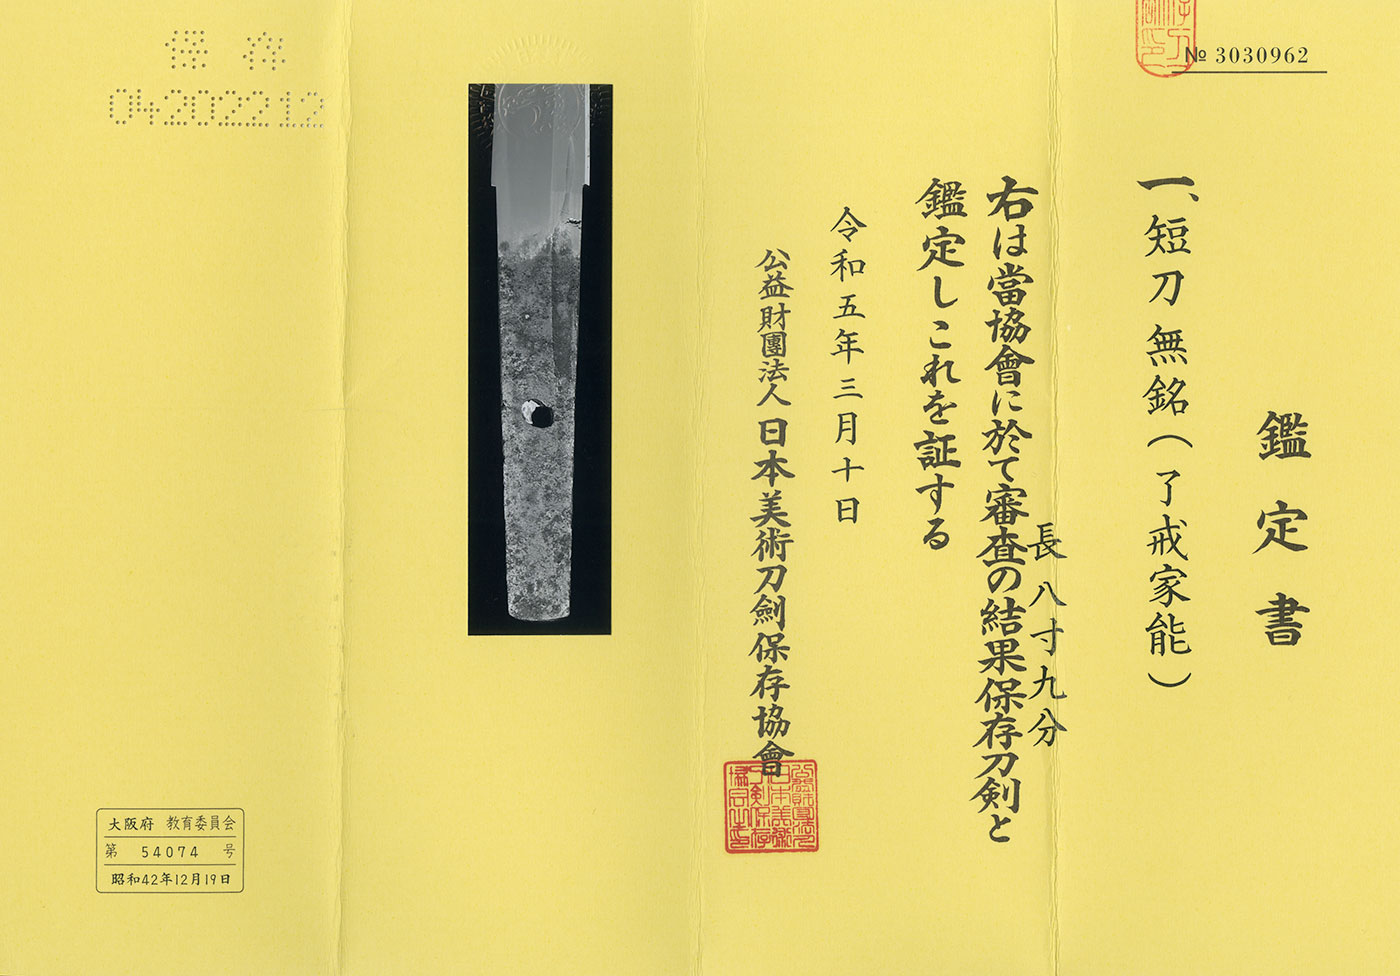 № 3030962
鑑定書
一、短刀 無銘(了戒家能)
長 八寸九分
右は當協會に於て審査の結果保存刀剣と
鑑定しこれを証する
令和五年三月十日
公益財團法人 日本美術刀劍保存協會
保存
04202212
大阪府 教育委員会
第 54074 号
昭和42年12月19日